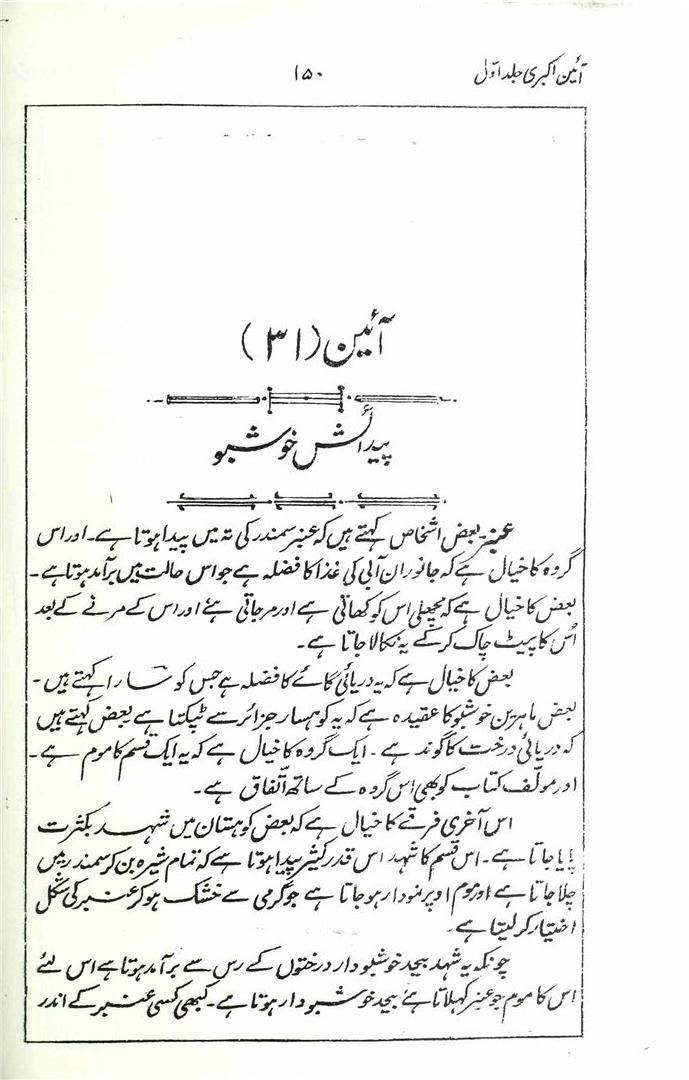 آئین اکبری جلد اوّل
۱۵۰
آئین (۳۱)
پیدائش خوشبو
عنبر۔ بعض اشخاص کہتے ہیں کہ عنبر سمندر کی تہ میں پیدا ہوتا ہے۔ اور اس
گروہ کا خیال ہے کہ جانوران آبی کی غذا کا فضلہ ہے جو اس حالت میں برآمد ہوتا ہے۔
بعض کا خیال ہے کہ مچھلی اس کو کھاتی ہے اور مرجاتی ہے اور اس کے مرنے کے بعد
اُس کا پیٹ چاک کر کے یہ نکالا جاتا ہے۔
بعض کا خیال ہے کہ یہ دریائی گائے کا فضلہ ہے جس کو سارا کہتے ہیں۔
بعض ماہرین خوشبو کا عقیدہ ہے کہ یہ کوہسار جزائر سے ٹپکتا ہے بعض کہتے ہیں
کہ دریائی درخت کا گوند ہے۔ ایک گروہ کا خیال ہے کہ یہ ایک قسم کا موم ہے۔
اور مولّف کتاب کو بھی اس گروہ کے ساتھ اتّفاق ہے۔
اس آخری فرقے کا خیال ہے کہ بعض کوہستان میں شہد بکثرت
پایا جاتا ہے۔ اس قسم کا شہد اس قدر کثیر پیدا ہوتا ہے کہ تمام شیرہ بن کر سمندر میں
چلا جاتا ہے اور موم اوپر نمودار ہو جاتا ہے جو گرمی سے خشک ہو کر عنبر کی شکل
اختیار کر لیتا ہے۔
چونکہ یہ شہد بیحد خوشبودار درختوں کے رس سے برآمد ہوتا ہے اس لئے
اس کا موم جو عنبر کہلاتا ہے بیحد خوشبودار ہوتا ہے۔ کبھی کسی عنبر کے اندر